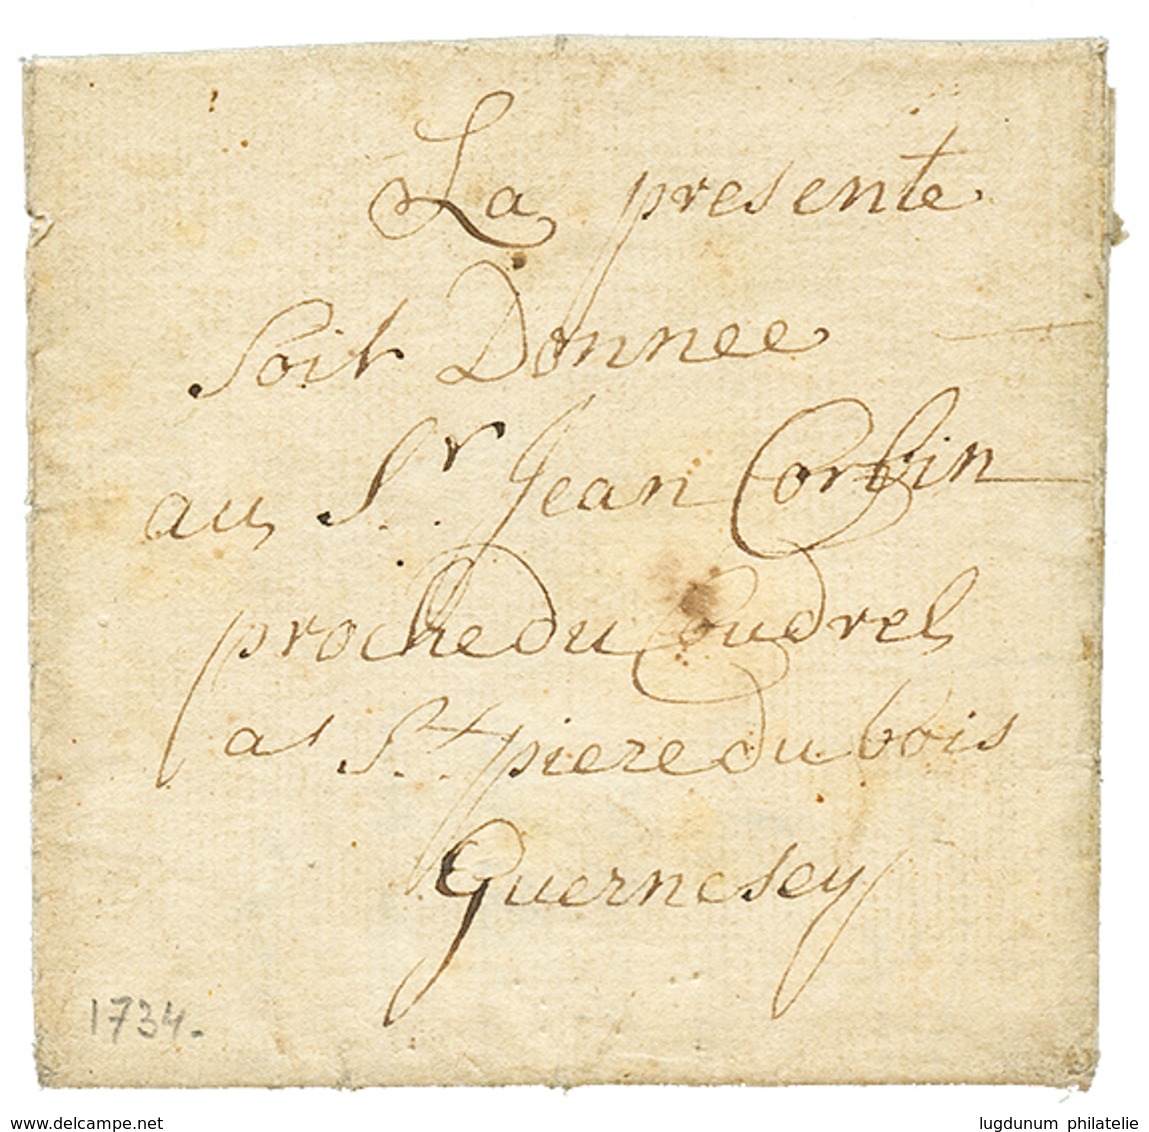 La presente
soit Donnee
au Sr. Jean Corbin
proche du Coudrel
a St. piere du bois
Guernesey
1734.
www.delcampe.net
lugdunum philatelie